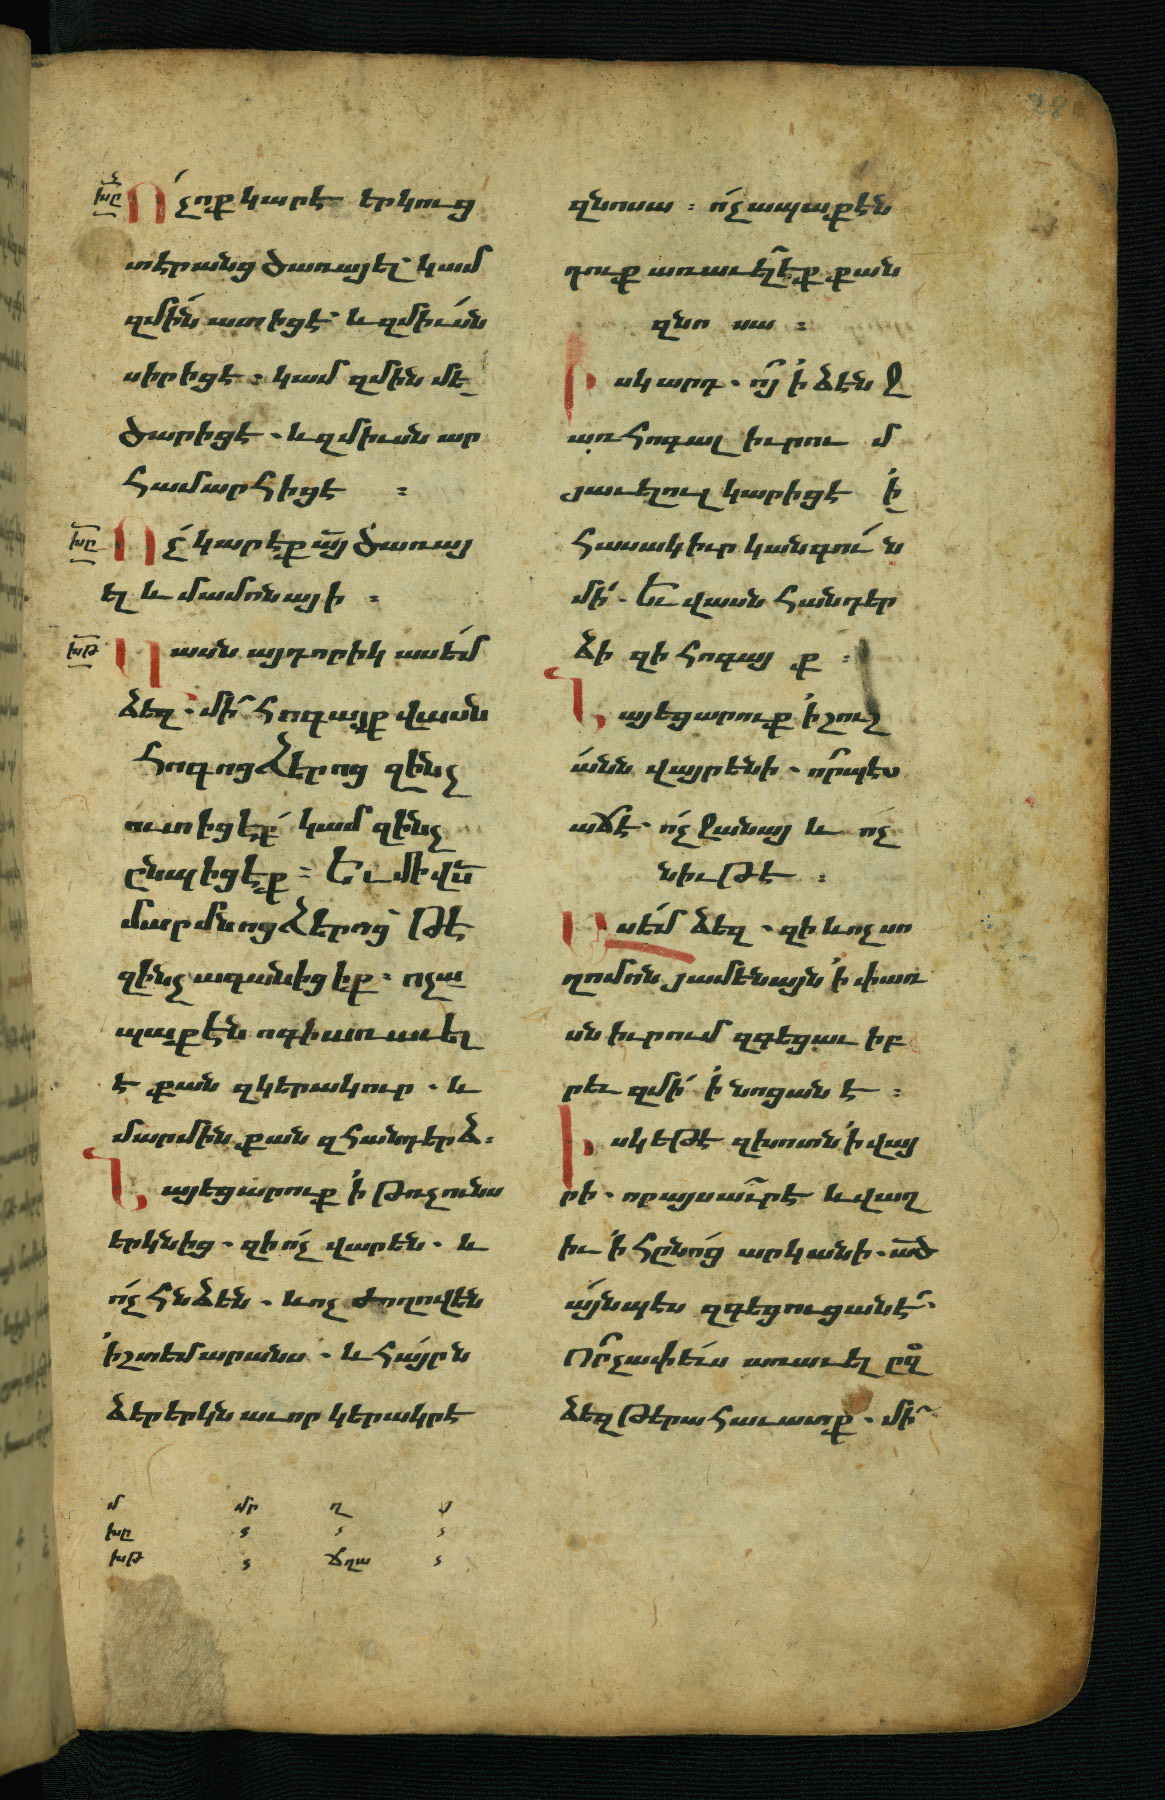 28
խը Ոչ ոք կարէ երկուց
տէրանց ծառայել՝ կամ
զմին ատիցէ՝ և զմիւսն
սիրիցէ ։ կամ զմին մե
ծարիցէ ․ և զմիւսն ար
համարհիցէ ։
խը Ոչ կարէք ա՟յ ծառայ
ել և մամոնայի ։
խթ Վասն այդորիկ ասեմ
ձեզ ․ մի՛ հոգայք վասն
հոգոց ձերոց զինչ
ուտիցէք՝ կամ զինչ
ըմպիցէք ։ Եւ մի վ՟ս
մարմնոց ձերոց՝ թէ
զինչ ագանիցիք ․ ոչ ա
պաքէն ոգի առաւել
է քան զկերակուր ․ և
մարմին քան զհանդերձ ։
Հայեցարուք ՚ի թռչունս
երկնից ․ զի ոչ վարեն ․ և
ոչ հնձեն ․ և ոչ ժողովեն
՚ի շտեմարանս ․ և հայրն
ձեր երկնաւոր կերակրէ
զնոսա ։ ոչ ապաքէն
դուք առաւել էք քան
զնոսա ։
Իսկ արդ ․ ո՞յ ՚ի ձէնջ
առ հոգալ իւրում
յաւելուլ կարիցէ ՚ի
հասակ իւր կանգուն
մի ․ Եւ վասն հանդեր
ձի զի հոգայք ։
Հայեցարուք ՚ի շուշ
անն վայրենի ․ ո՟րպէս
աճէ ․ ոչ ջանայ և ոչ
նիւթէ ։
Ասեմ ձեզ ․ զի և ոչ սո
ղոմոն յամենայն ՚ի փառ
սն իւրում զգեցաւ իբ
րեւ զմի ՚ի նոցանէ ։
Իսկ եթէ զխոտն ՚ի վայ
րի ․ որ այսաւր է և վաղ
իւ ՚ի հընոց արկանի ․ ա՟ծ
այնպէս զգեցուցանէ ․
Ո՟րչափ ևս առաւել
ձեզ թերահաւատք ․ մի՛
մ մր ղ յ
խը ՟ ՟ ՟
խթ ՟ ճղա ՟